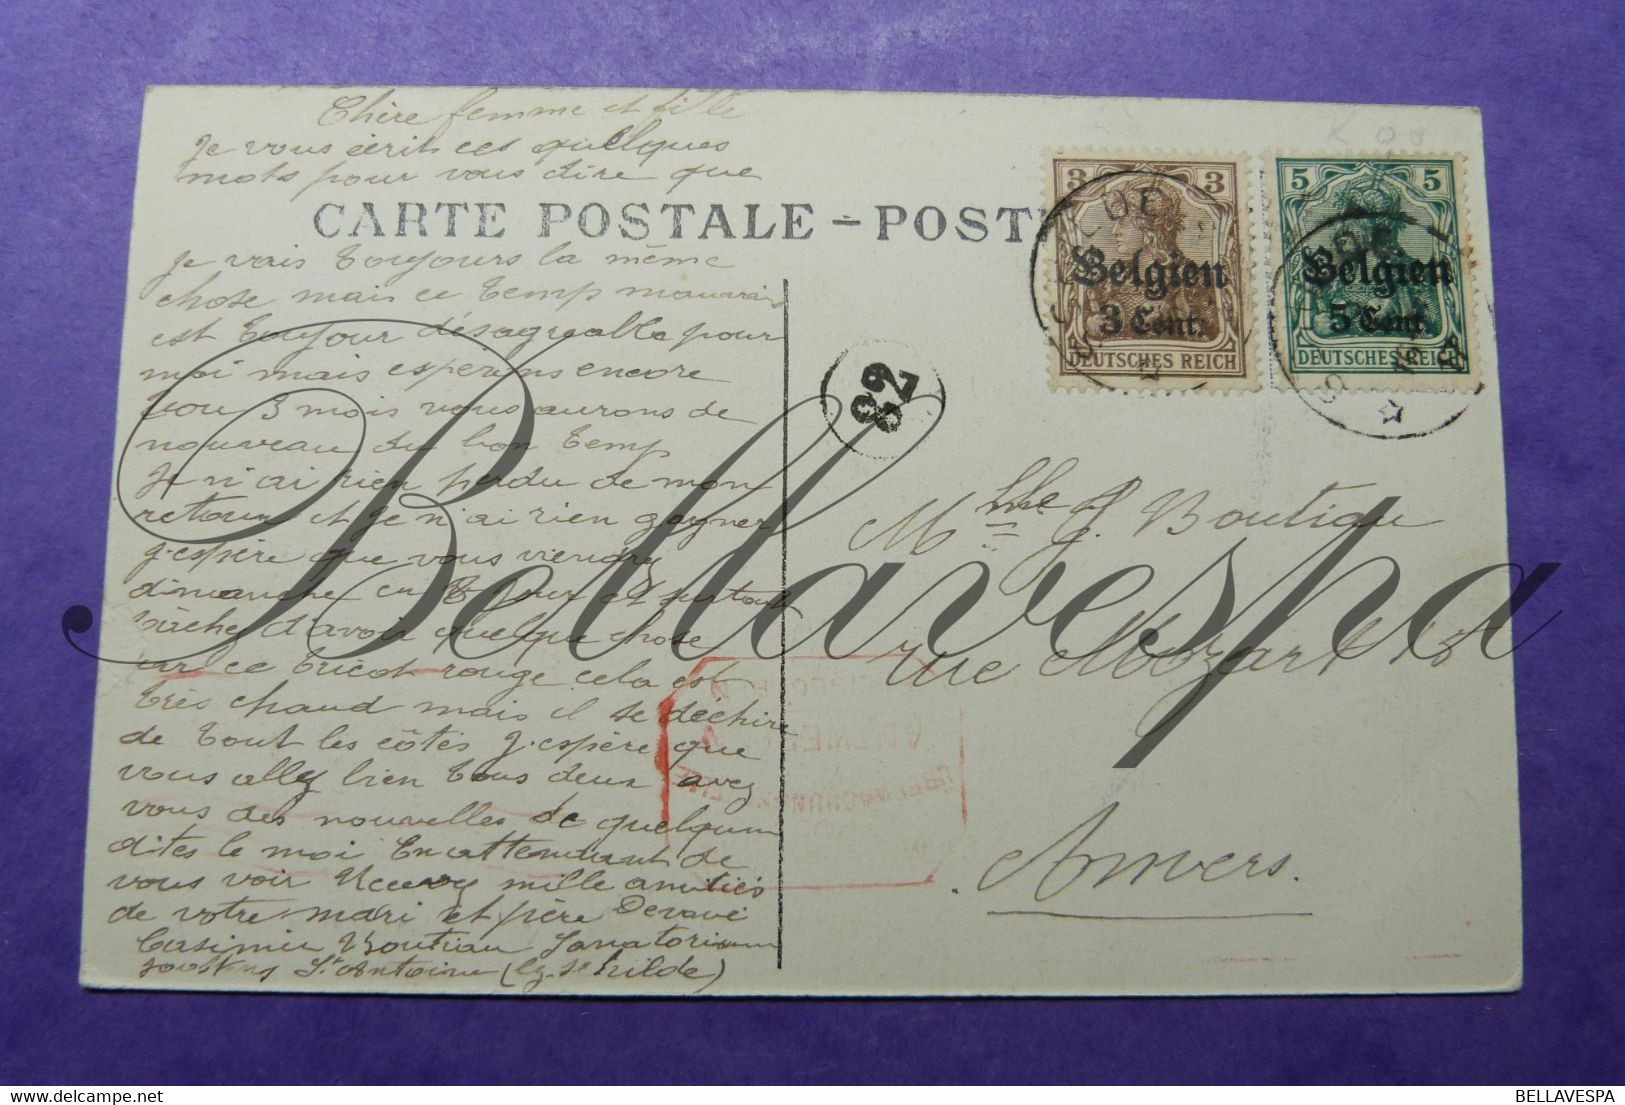 Chère femme et fille
Je vous écrit ces quelques
mots pour vous dire que
CARTE POSTALE – POST
je vais toujours la même
chose mais ce temp mauvais
est toujour désagreable pour
moi mais esperons encore
3 mois vous aurons de
nouveau du bon temp
Je n'ai rien perdu de mon
retour et je n'ai rien gagner
j'espère que vous viendrez
dimanche en 8 jour et surtout
tâchez d'avoir quelque chose
sur ce tricot rouge cela est
très chaud mais il se déchire
de tout les côtés j'espère que
vous allez bien tous deux avez
vous des nouvelles de quelqu'un
dites le moi En attendant de
vous voir Recevez mille amitiés
de votre mari et père Dévoué
Casimir Boutiau Sanatorium
St Antoine (Schilde)
3 3
Belgien
3 Cent.
DEUTSCHES REICH
5 5
Belgien
5 Cent.
DEUTSCHES REICH
82
Mlle J. Boutiau
rue Mozart 13
Anvers.
Bellavespa
BELLAVESPA